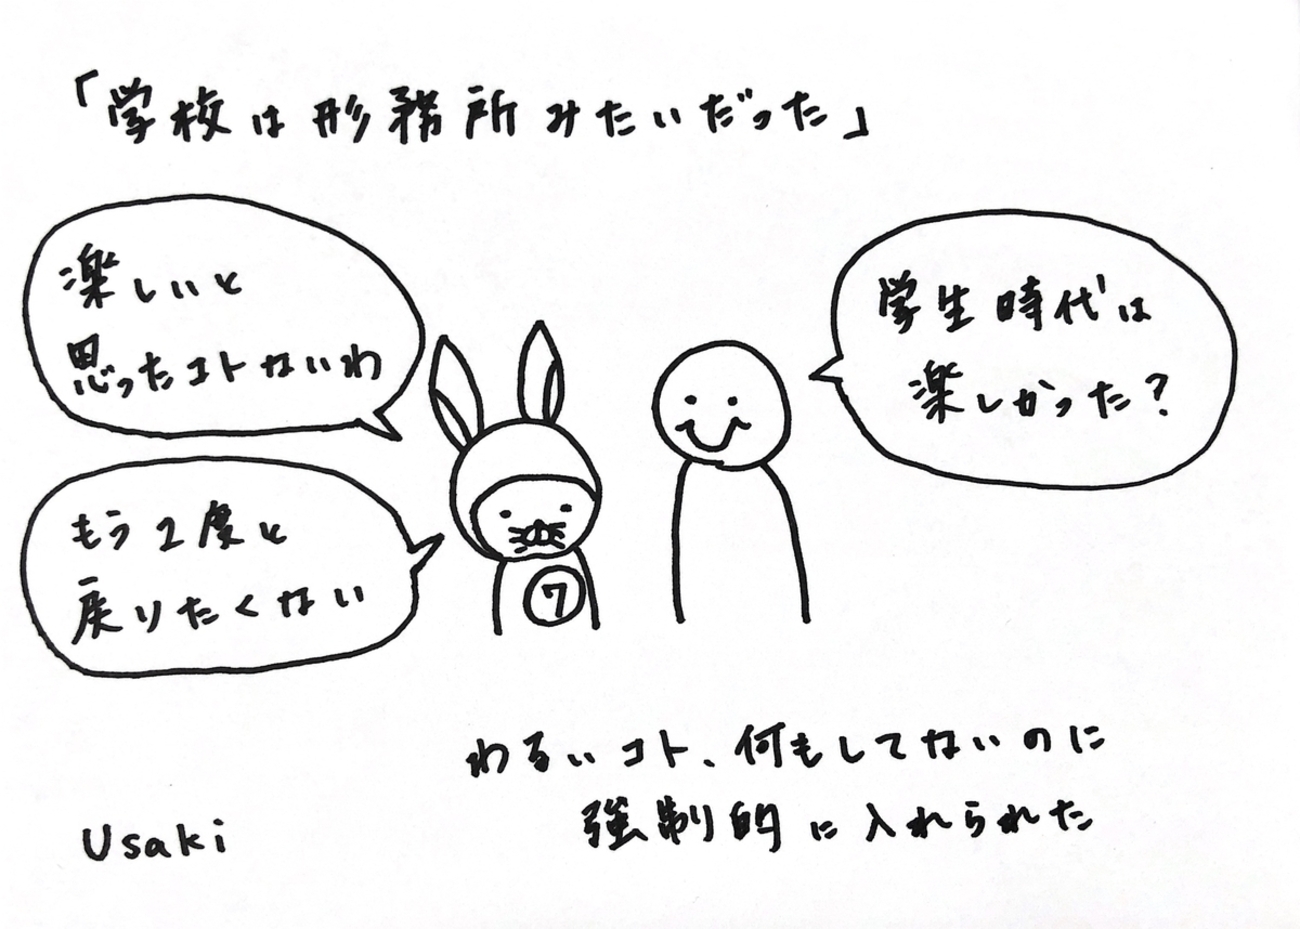 「学校は形務所みたいだった」
学生時代は
楽しかった?
楽しいと
思ったコトないわ
もう2度と
戻りたくない
7
わるいコト、何もしてないのに
強制的に入れられた
Usaki